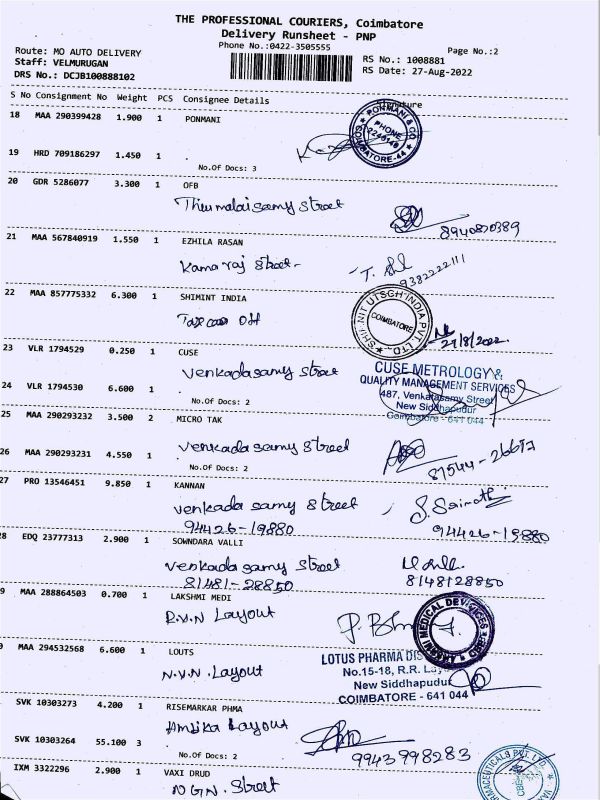 THE PROFESSIONAL COURIERS, Coimbatore
Delivery Runsheet - PNP
Phone No.:0422-3505555
Page No.:2
Route: MO AUTO DELIVERY
Staff: VELMURUGAN
DRS No.: DCJB100888102
RS No.: 1008881
RS Date: 27-Aug-2022
S No Consignment No Weight PCS Consignee Details
18 MAA 290399428 1.900 1 PONMANI
PONMANI & CO
PHONE
COIMBATORE-44
19 HRD 709186297 1.450 1 .
No.Of Docs: 3
20 GDR 5286077 3.300 1 OFB
Thirumalaisamy Street
8940820389
21 MAA 567840919 1.550 1 EZHILA RASAN
Kamaraj Street
9382222111
22 MAA 857775332 6.300 1 SHIMINT INDIA
COIMBATORE
27/8/2022
23 VLR 1794529 0.250 1 CUSE
Venkadasamy Street
CUSE METROLOGY &
QUALITY MANAGEMENT SERVICES
487, Venkatasamy Street
New Siddhapudur
Coimbatore - 641 044
24 VLR 1794530 6.600 1 .
No.Of Docs: 2
25 MAA 290293232 3.500 2 MICRO TAK
Venkada Samy Street
87544-26617
26 MAA 290293231 4.550 1 .
No.Of Docs: 2
27 PRO 13546451 9.850 1 KANNAN
Venkada Samy Street
94426-19880
94426-19880
8 EDQ 23777313 2.900 1 SOWNDARA VALLI
Venkada Samy Street
81481-28850
8148128850
9 MAA 288864503 0.700 1 LAKSHMI MEDI
R.V.N Layout
LAKSHMI MEDICAL DEVICES
MAA 294532568 6.600 1 LOUTS
N.V.N. Layout
LOTUS PHARMA
No.15-18, R.R. Layout
New Siddhapudur
COIMBATORE - 641 044
SVK 10303273 4.200 1 RISEMARKAR PHMA
Ambika Layout
9943998283
SVK 10303264 55.100 3 .
No.Of Docs: 2
IXM 3322296 2.900 1 VAXI DRUD
N G N. Street